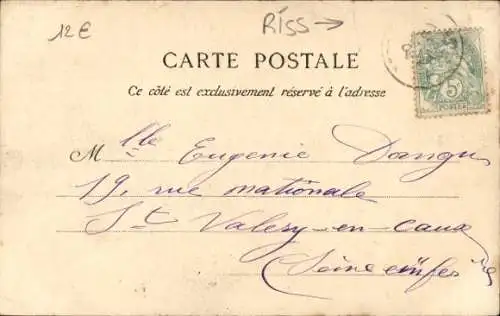 12 €
RISS →
CARTE POSTALE
Ce côté est exclusivement réservé à l'adresse
5
POSTES
Mlle Eugenie Dangu
19, rue nationale
St Valery-en-caux
(Seine infre)